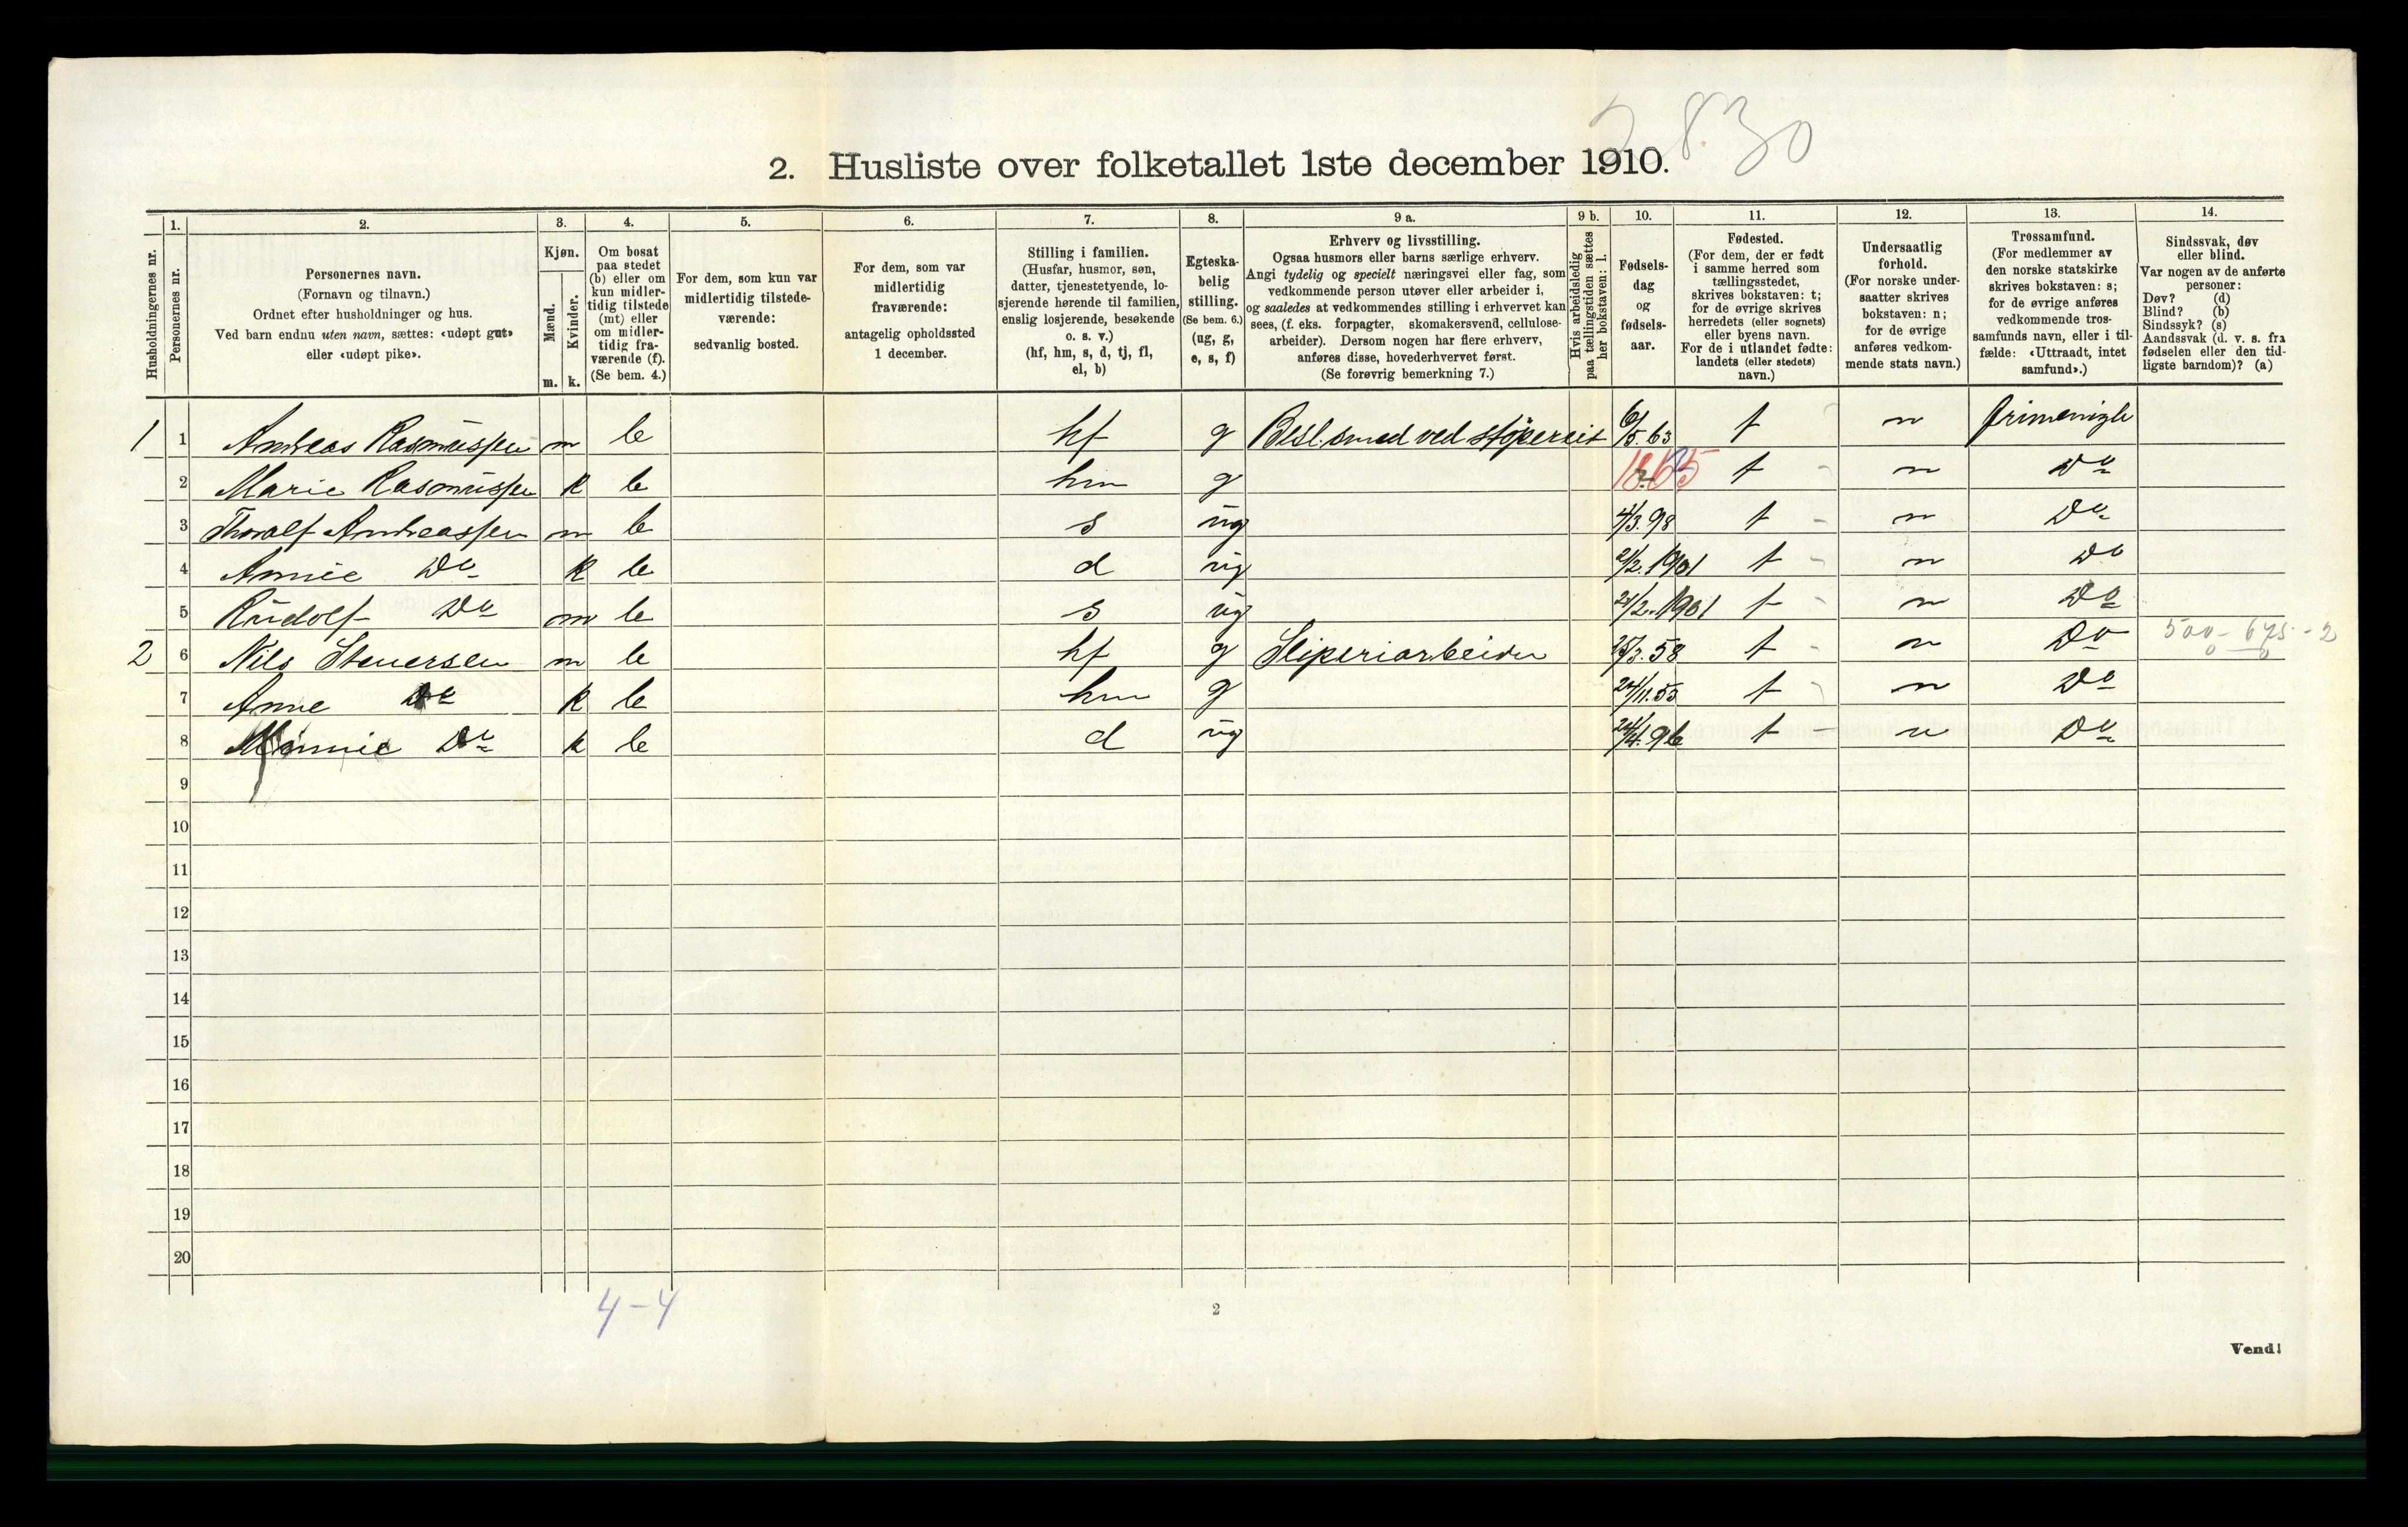 2830
2. Husliste over folketallet 1ste december 1910.
Husholdningernes nr.
1.
Personernes nr.
2.
Personernes navn.
(Fornavn og tilnavn.)
Ordnet efter husholdninger og hus.
Ved barn endnu uten navn, sættes: «udøpt gut»
eller «udøpt pike».
3.
Kjøn.
Mænd.
Kvinder.
m.
k.
4.
Om bosat
paa stedet
(b) eller om
kun midler-
tidig tilstede
(mt) eller
om midler-
tidig fra-
værende (f).
(Se bem. 4.)
5.
For dem, som kun var
midlertidig tilstede-
værende:
sedvanlig bosted.
6.
For dem, som var
midlertidig
fraværende:
antagelig opholdssted
1 december.
7.
Stilling i familien.
(Husfar, husmor, søn,
datter, tjenestetyende, lo-
sjerende hørende til familien,
enslig losjerende, besøkende
o. s. v.)
(hf, hm, s, d, tj, fl,
el, b)
8.
Egteska-
belig
stilling.
(Se bem. 6.)
(ug, g,
e, s, f)
9 a.
Erhverv og livsstilling.
Ogsaa husmors eller barns særlige erhverv.
Angi tydelig og specielt næringsvei eller fag, som
vedkommende person utøver eller arbeider i,
og saaledes at vedkommendes stilling i erhvervet kan
sees, (f. eks. forpagter, skomakersvend, cellulose-
arbeider). Dersom nogen har flere erhverv,
anføres disse, hovederhvervet først.
(Se forøvrig bemerkning 7.)
9 b.
Hvis arbeidsledig
paa tællingstiden sættes
her bokstaven: l.
10.
Fødsels-
dag
og
fødsels-
aar.
11.
Fødested.
(For dem, der er født
i samme herred som
tællingsstedet,
skrives bokstaven: t;
for de øvrige skrives
herredets (eller sognets)
eller byens navn.
For de i utlandet fødte:
landets (eller stedets)
navn.)
12.
Undersaatlig
forhold.
(For norske under-
saatter skrives
bokstaven: n;
for de øvrige
anføres vedkom-
mende stats navn.)
13.
Trossamfund.
(For medlemmer av
den norske statskirke
skrives bokstaven: s;
for de øvrige anføres
vedkommende tros-
samfunds navn, eller i til-
fælde: «Uttraadt, intet
samfund».)
14.
Sindssvak, døv
eller blind.
Var nogen av de anførte
personer:
Døv? (d)
Blind? (b)
Sindssyk? (s)
Aandssvak (d. v. s. fra
fødselen eller den tid-
ligste barndom)? (a)
1 1 Andreas Rasmussen m b hf g Besl. smed ved 6/5.63 t n frimenigh
2 Marie Rasmussen k b hm g 1865 t n Do
3 Thoralf Andreassen m b s ug 4/3.98 t - n Do
4 Annie Do k b d ug 21/2.1901 t - n Do
5 Rudolf Do m b s ug 21/2.1901 t - n Do
2 6 Nils Stenersen m b hf g Sliperiarbeider /3.58 t - n Do 500-675-2
0 0
7 Anne Do k b hm g 24/11.55 t n Do
8 Minnie Do k b d ug 24/4.96 t - n Do
9
10
11
12
13
14
15
16
17
18
19
20
4-4
2
Vend!